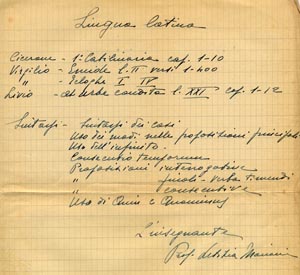 Lingua latina
Cicerone - 1ª Catilinaria cap. 1-10
Virgilio - Eneide l. II versi 1-400
" - Egloghe I IV
Livio - ab Urbe condita l. XXI cap. 1-12
Sintassi - Sintassi dei casi
Uso dei modi nelle proposizioni principali
Uso dell'infinito.
Consecutio temporum
Proposizioni interrogative
" finali - verba timendi
" consecutive
Uso di Quin e Quominus
L'insegnante
Prof. Letizia